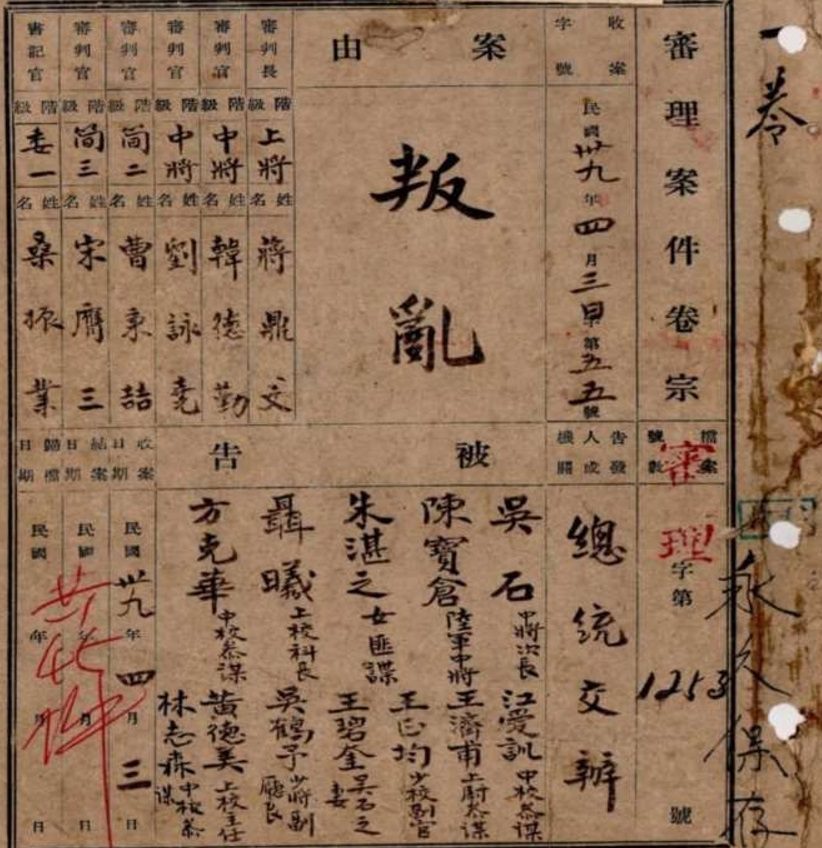 一卷
永久保存
審理案件卷宗
檔案號數
審理
字第
1253
號
收案字號
民國卅九年四月三日字第五五號
告發人或機關
總統交辦
案由
叛亂
被告
吳石 中將次長
江愛訓 中校參謀
陳寶倉 陸軍中將
王濟甫 上尉參謀
朱諶之 女匪諜
王正均 少校副官
王碧奎 吳石之妻
聶曦 上校科長
吳鶴予 少將副廳長
方克華 中校參謀
黃德美 上校主任
林志森 中校參謀
審判長
階級
上將
姓名
蔣鼎文
審判官
階級
中將
姓名
韓德勤
審判官
階級
中將
姓名
劉詠堯
審判官
階級
簡二
姓名
曹秉喆
審判官
階級
簡三
姓名
宋膺三
書記官
階級
委一
姓名
桑振業
收案日期
民國卅九年四月三日
結案日期
民國 年 月 日
歸檔日期
民國 年 月 日